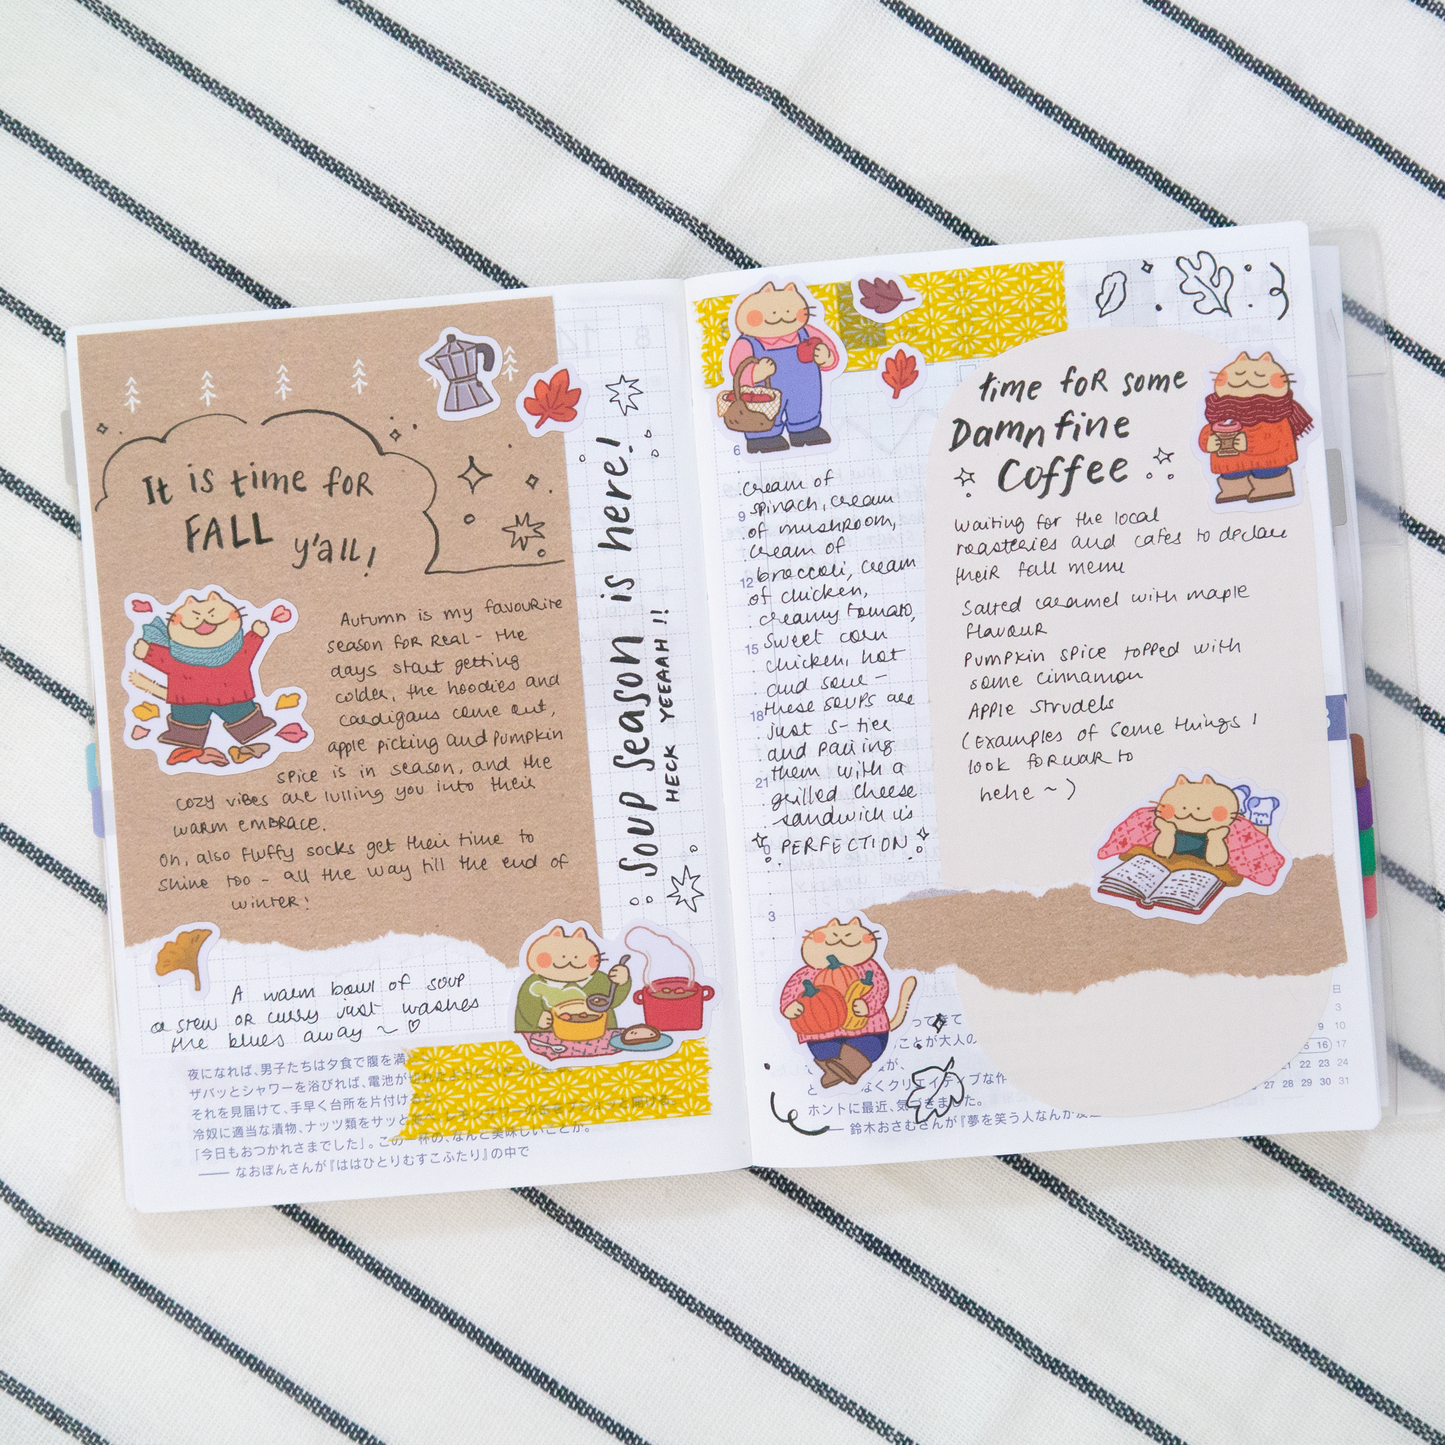 It is time for
FALL
y'all!
Autumn is my favourite
season for real - the
days start getting
colder, the hoodies and
cardigans come out,
apple picking and pumpkin
spice is in season, and the
cozy vibes are lulling you into their
warm embrace.
Oh, also fluffy socks get their time to
shine too - all the way till the end of
winter!
A warm bowl of soup
a stew or curry just washes
the blues away ~ ♡
夜になれば、男子たちは夕食で腹を満
ザバッとシャワーを浴びれば、電池が
それを見届けて、手早く台所を片付け
冷奴に適当な漬物、ナッツ類をサッと
「今日もおつかれさまでした」。この一杯の、なんと美味しいことか。
―― なおぽんさんが『ははひとりむすこふたり』の中で
Soup season is here!
HECK YEAAH !!
cream of
spinach, cream
of mushroom,
cream of
broccoli, cream
of chicken,
creamy tomato,
sweet corn
chicken, hot
and sour -
these soups are
just S-tier
and pairing
them with a
grilled cheese
sandwich is
PERFECTION
6
9
12
15
18
21
0
3
time for some
Damn fine
Coffee
waiting for the local
roasteries and cafes to declare
their fall menu
Salted caramel with maple
flavour
Pumpkin spice topped with
some cinnamon
Apple strudels
(Examples of some things I
look forwar to
hehe ~)
ってきて
ことが大人の
が、
と
なくクリエイティブな作
ホントに最近、気づきました。
―― 鈴木おさむさんが『夢を笑う人なんか
日
3
9 10
16 17
23 24
27 28 29 30 31